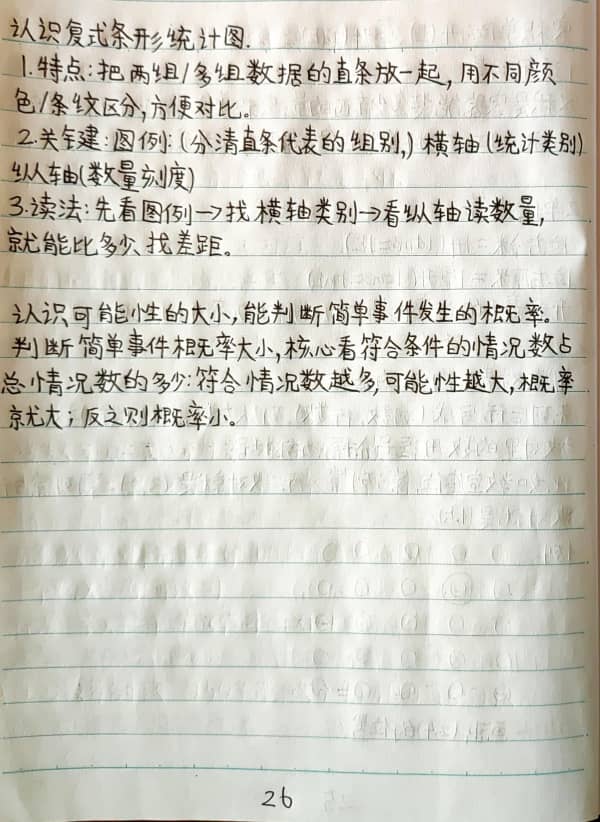 认识复式条形统计图.
1.特点:把两组/多组数据的直条放一起,用不同颜
色/条纹区分,方便对比。
2.关键:图例:(分清直条代表的组别,)横轴(统计类别)
纵轴(数量刻度)
3.读法:先看图例→找横轴类别→看纵轴读数量,
就能比多少、找差距。
认识可能性的大小,能判断简单事件发生的概率。
判断简单事件概率大小,核心看符合条件的情况数占
总情况数的多少:符合情况数越多,可能性越大,概率
就大;反之则概率小。
26